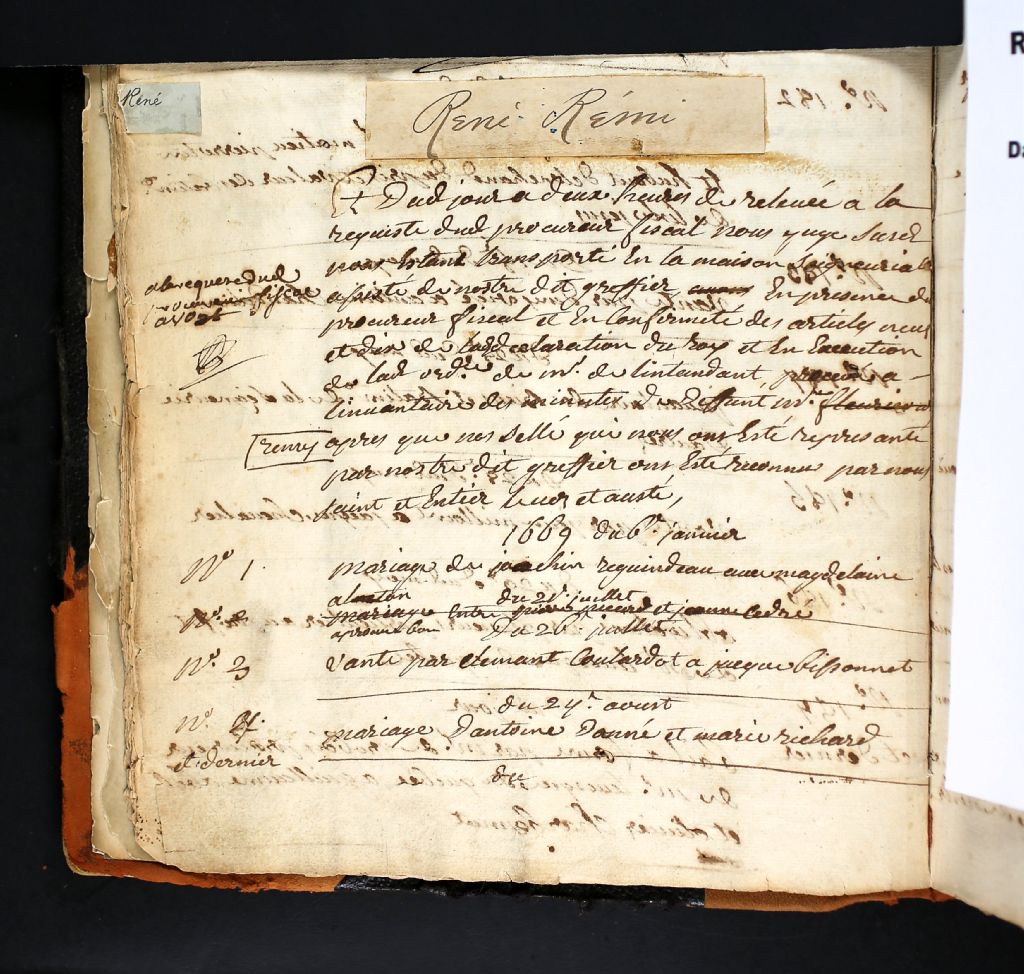 René
René Rémi
Dud jour a deux heures de relevée a la
requiste dud procureur fiscal nous juge Susd
nous Estant transporté En la maison Seigneuriale
alarequere dud
procureur fiscal
avost
assisté de nostre dit greffier En presence du
procureur fiscal et En Conformité des articles neuf
et dix de lad declaration du roy et En Execution
de lad ord.ce de mr. de lintendant, procedé a
linvantaire des minutes de deffunt mr. fleuricour
remy apres que nos sellé qui nous ont Esté represanté
par nostre dit greffier ont Esté reconnu par nous
saint et Entier
1669 du 6e. janvier
No 1. mariage de joachin reguindeau avec magdelaine
alanton du 21e. juillet
No. 2 mariage Entre picard et jeanne Cedre
du 26e. juillet
No. 3 vante par Clemant Coulardot a jacque bissonnet
du 29e. aoust
No. 4. mariage Dantoine Danné et marie richard
et dernier
du